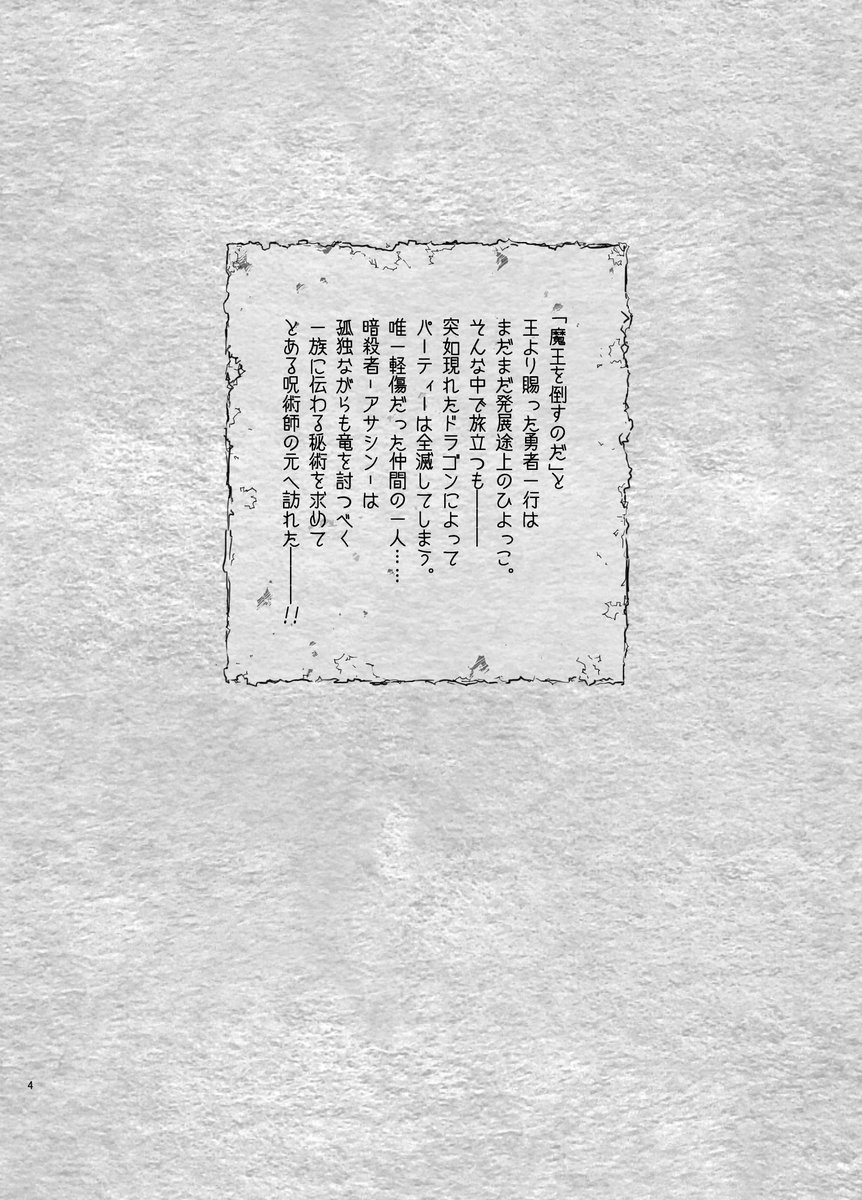 「魔王を倒すのだ」と
王より賜った勇者一行は
まだまだ発展途上のひよっこ。
そんな中で旅立つも――
突如現れたドラゴンによって
パーティーは全滅してしまう。
唯一軽傷だった仲間の一人……
暗殺者-アサシン-は
孤独ながらも竜を討つべく
一族に伝わる秘術を求めて
とある呪術師の元へ訪れた――!!
4